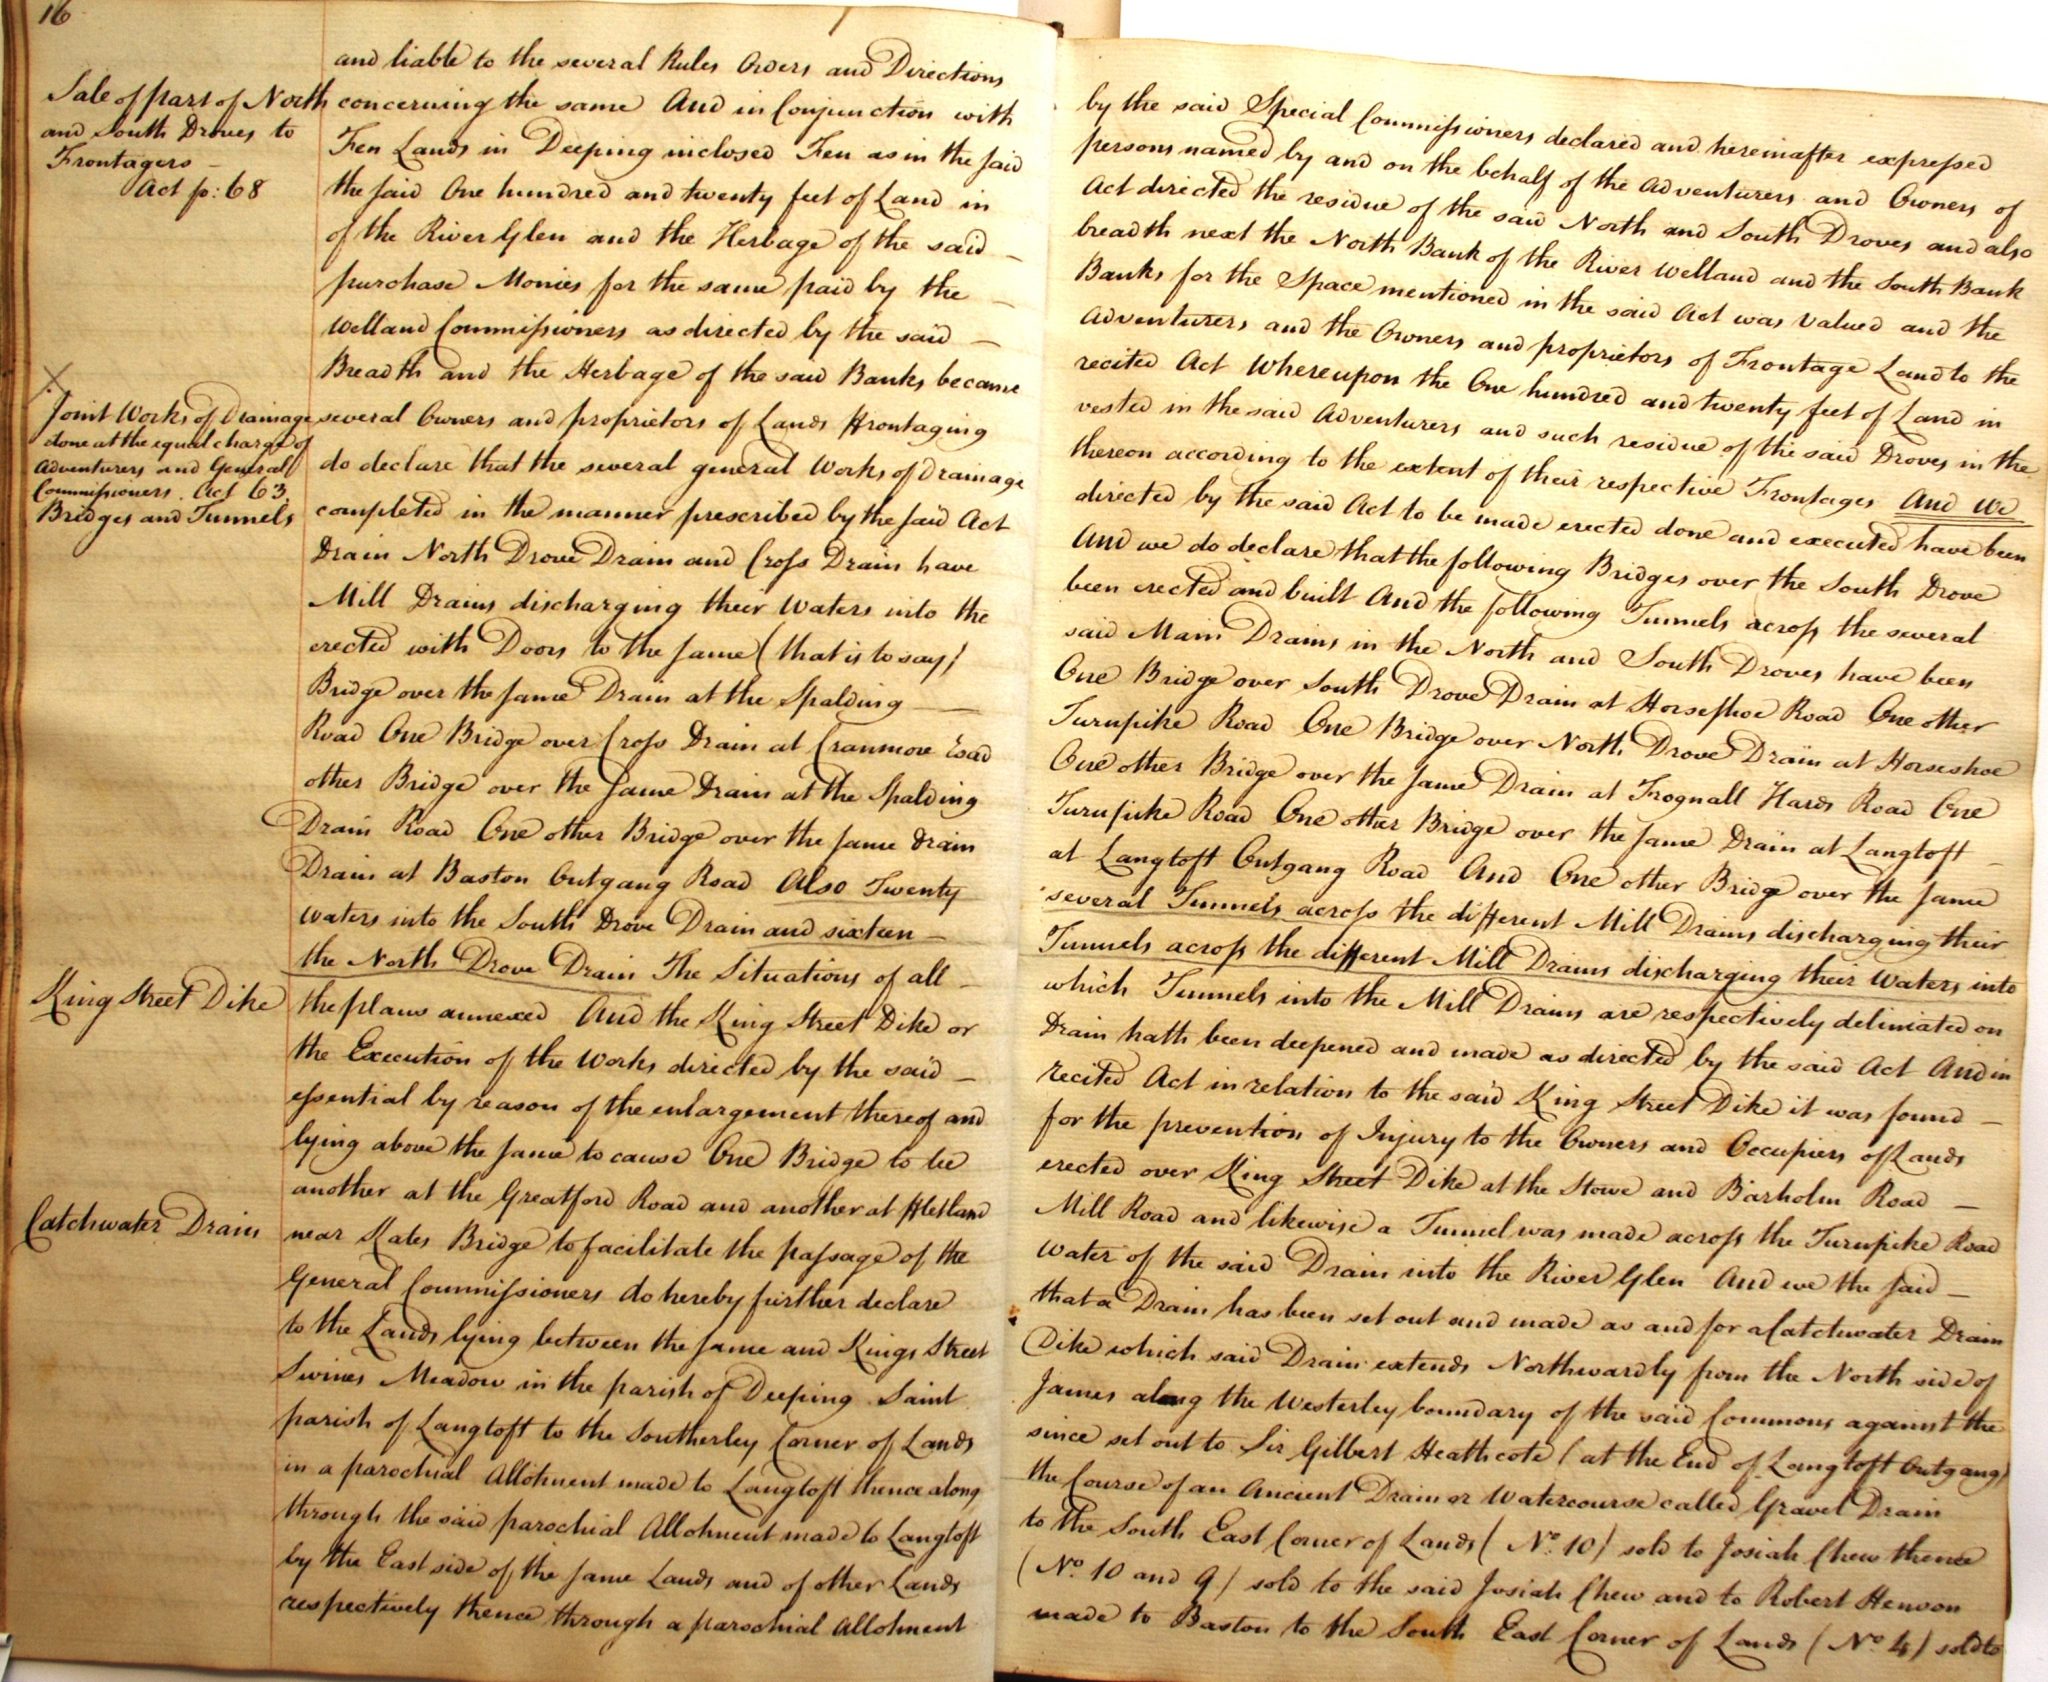 16
Sale of part of North
and South Droves to
Frontagers
Act p: 68
and liable to the several Rules Orders and Directions by the said Special Commissioners declared and hereinafter expressed
concerning the same And in Conjunction with persons named by and on the behalf of the Adventurers and Owners of
Fen Lands in Deeping inclosed Fen as in the said Act directed the residue of the said North and South Droves and also
the said One hundred and twenty feet of Land in breadth next the North Bank of the River Welland and the South Bank
of the River Glen and the Herbage of the said Banks for the Space mentioned in the said Act was valued and the
purchase Monies for the same paid by the Adventurers and the Owners and proprietors of Frontage Land to the
Welland Commissioners as directed by the said recited Act Whereupon the One hundred and twenty feet of Land in
Breadth and the Herbage of the said Banks became vested in the said Adventurers and such residue of the said Droves in the
X
Joint Works of Drainage
done at the equal charge of
Adventurers and General
Commissioners. Act 63.
Bridges and Tunnels
several Owners and proprietors of Lands ffrontaging thereon according to the extent of their respective Frontages And We
do declare that the several general Works of Drainage directed by the said Act to be made erected done and executed have been
completed in the manner prescribed by the said Act And we do declare that the following Bridges over the South Drove
Drain North Drove Drain and Cross Drain have been erected and built And the following Tunnels across the several
Mill Drains discharging their Waters into the said Main Drains in the North and South Droves have been
erected with Doors to the same (that is to say) One Bridge over South Drove Drain at Horseshoe Road One other
Bridge over the same Drain at the Spalding Turnpike Road One Bridge over North Drove Drain at Horseshoe
Road One Bridge over Cross Drain at Cranmore Road One other Bridge over the same Drain at Frognall Hards Road One
other Bridge over the same Drain at the Spalding Turnpike Road One other Bridge over the same Drain at Langtoft
Drain Road One other Bridge over the same Drain at Langtoft Outgang Road And One other Bridge over the same
Drain at Baston Outgang Road Also Twenty several Tunnels across the different Mill Drains discharging their
Waters into the South Drove Drain and sixteen Tunnels across the different Mill Drains discharging their Waters into
the North Drove Drain The Situations of all which Tunnels into the Mill Drains are respectively deliniated on
King Street Dike
the plans annexed And the King Street Dike or Drain hath been deepened and made as directed by the said Act And in
the Execution of the Works directed by the said recited Act in relation to the said King Street Dike it was found
essential by reason of the enlargement thereof and for the prevention of Injury to the Owners and Occupiers of Lands
lying above the same to cause One Bridge to be erected over King Street Dike at the Stowe and Barholm Road
another at the Greatford Road and another at ffletland Mill Road and likewise a Tunnel was made across the Turnpike Road
Catchwater Drain
near Kates Bridge to facilitate the passage of the Water of the said Drain into the River Glen And we the said
General Commissioners do hereby further declare that a Drain has been set out and made as and for a Catchwater Drain
to the Lands lying between the same and Kings Street Dike which said Drain extends Northwardly from the North side of
Swines Meadow in the parish of Deeping Saint James along the Westerley boundary of the said Commons against the
parish of Langtoft to the Southerley Corner of Lands since set out to Sir Gilbert Heathcote (at the End of Langtoft Outgang)
in a parochial Allotment made to Langtoft thence along the Course of an Ancient Drain or Watercourse called Gravel Drain
through the said parochial Allotment made to Langtoft to the South East Corner of Lands (No. 10) sold to Josiah Chew thence
by the East side of the same Lands and of other Lands (No. 10 and 9) sold to the said Josiah Chew and to Robert Henson
respectively thence through a parochial Allotment made to Baston to the South East Corner of Lands (No. 4) sold to